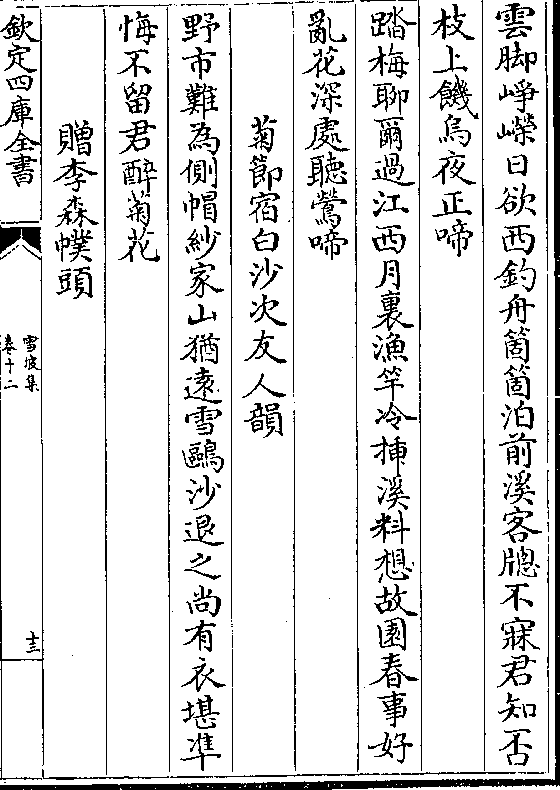 雲脚崢嶸日欲西釣舟箇箇泊前溪客牕不寐君知否
枝上饑烏夜正啼
踏梅聊爾過江西月裏漁竿冷揷溪料想故園春事好
亂花深處聽鶯啼
菊節宿白沙次友人韻
野市難為側帽紗家山猶遠雪鷗沙退之尚有衣堪凖
悔不留君醉菊花
贈李森幞頭
欽定四庫全書
雪坡集
卷十二
十三